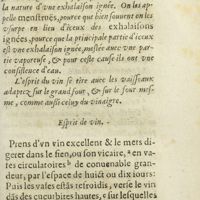 la nature d'vne exhalaison ignee. On les ap-
pelle menstrues, pource que bien souuent on les
vsurpe en lieu d'iceux des exhalaisons
ignées, pource que la principale partie d'iceux
est vne exhalaison ignée, meslée auec vne par-
tie vaporeuse, & pour ceste cause ils ont vne
consistence d'eau.
L'esprit du vin se tire auec les vaisseaux
adaptez sur le grand four, & sur le four mes-
me, comme aussi celuy du vinaigre.
Esprit de vin.
PRens d'vn vin excellent & le mets di-
gerer dans le fien, ou son vicaire, en va-
ses circulatoires de conuenable gran-
deur, par l'espace de huict ou dix iours:
Puis les vases estãs refroidis, verse le vin
dãs des cucurbites hautes, sur lesquelles